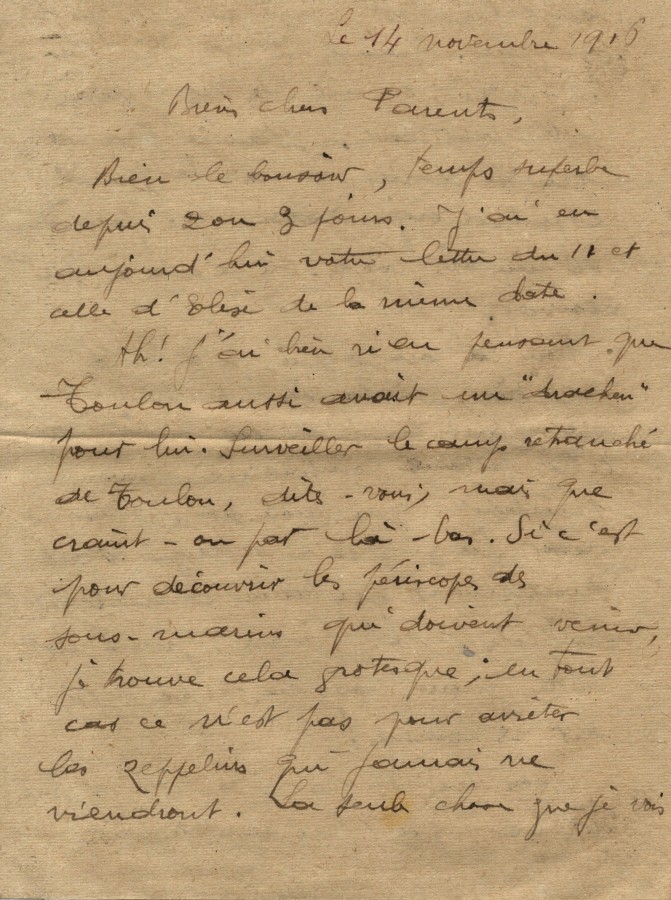 Le 14 novembre 1916
Bien chers Parents,
Bien le bonsoir, temps superbe
depuis 2 ou 3 jours. J'ai eu
aujourd'hui votre lettre du 11 et
celle d'Elise de la même date.
Ah! J'ai bien ri en pensant que
Toulon aussi avait un "drachen"
pour lui. Surveiller le camp retranché
de Toulon, dites-vous, mais que
craint-on par là-bas. Si c'est
pour découvrir les périscopes des
sous-marins qui doivent venir,
je trouve cela grotesque; en tout
cas ce n'est pas pour arrêter
les zeppelins qui jamais ne
viendront. La seule chose que je vois